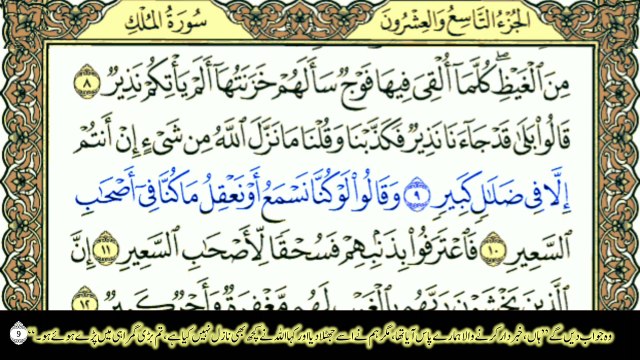 الجزء التاسع والعشرون سورة الملك
مِنَ الْغَيْظِ ۖ كُلَّمَا أُلْقِيَ فِيهَا فَوْجٌ سَأَلَهُمْ خَزَنَتُهَا أَلَمْ يَأْتِكُمْ نَذِيرٌ ٨
قَالُوا بَلَىٰ قَدْ جَاءَنَا نَذِيرٌ فَكَذَّبْنَا وَقُلْنَا مَا نَزَّلَ اللَّهُ مِن شَيْءٍ إِنْ أَنتُمْ
إِلَّا فِي ضَلَالٍ كَبِيرٍ ٩ وَقَالُوا لَوْ كُنَّا نَسْمَعُ أَوْ نَعْقِلُ مَا كُنَّا فِي أَصْحَابِ
السَّعِيرِ ١٠ فَاعْتَرَفُوا بِذَنبِهِمْ فَسُحْقًا لِّأَصْحَابِ السَّعِيرِ ١١ إِنَّ
الَّذِينَ يَخْشَوْنَ رَبَّهُم بِالْغَيْبِ لَهُم مَّغْفِرَةٌ وَأَجْرٌ كَبِيرٌ ١٢
وہ جواب دیں گے "ہاں، خبردار کرنے والا ہمارے پاس آیا تھا، مگر ہم نے اسے جھٹلا دیا اور کہا اللہ نے کچھ بھی نازل نہیں کیا ہے، تم بڑی گمراہی میں پڑے ہوئے ہو۔" 9